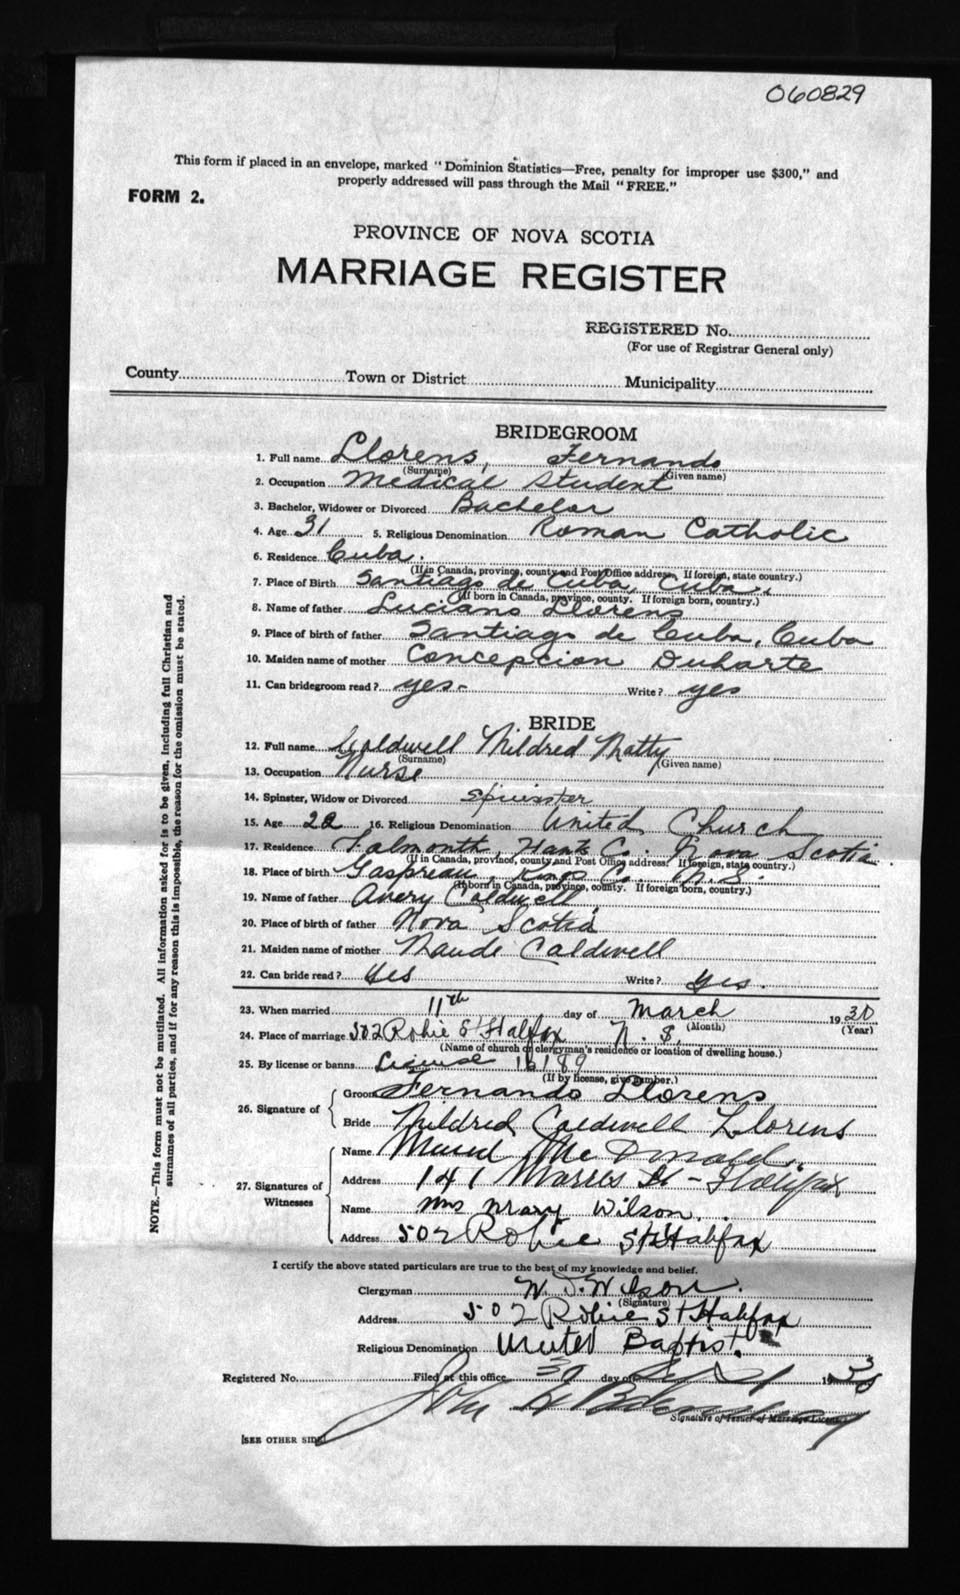 060829
This form if placed in an envelope, marked "Dominion Statistics—Free, penalty for improper use $300," and
properly addressed will pass through the Mail "FREE."
FORM 2.
PROVINCE OF NOVA SCOTIA
MARRIAGE REGISTER
REGISTERED No.
(For use of Registrar General only)
County Town or District Municipality
BRIDEGROOM
1. Full name Llorens, Fernando
(Surname) (Given name)
2. Occupation Medical Student
3. Bachelor, Widower or Divorced Bachelor
4. Age 31 5. Religious Denomination Roman Catholic
6. Residence Cuba.
(If in Canada, province, county and Post Office address. If foreign, state country.)
7. Place of Birth Santiago de Cuba, Cuba.
(If born in Canada, province, county. If foreign born, country.)
8. Name of father Luciano Llorens
9. Place of birth of father Santiago de Cuba, Cuba
10. Maiden name of mother Concepcion Duharte
11. Can bridegroom read? yes- Write? yes
BRIDE
12. Full name Caldwell Mildred Matty
(Surname) (Given name)
13. Occupation Nurse
14. Spinster, Widow or Divorced Spinster
15. Age 22 16. Religious Denomination United Church
17. Residence Falmonth, Hants Co. Nova Scotia
(If in Canada, province, county and Post Office address. If foreign, state country.)
18. Place of birth Gaspreau, Kings Co. N.S.
(If born in Canada, province, county. If foreign born, country.)
19. Name of father Avery Caldwell
20. Place of birth of father Nova Scotia
21. Maiden name of mother Maude Caldwell
22. Can bride read? Yes Write? yes.
23. When married 11th day of March 1930
(Month) (Year)
24. Place of marriage 502 Robie St Halifax N.S.
(Name of church or clergyman's residence or location of dwelling house.)
25. By license or banns License 16189
(If by license, give number.)
26. Signature of Groom Fernando Llorens
Bride Mildred Caldwell Llorens
27. Signatures of Witnesses Name Maud McDonald.
Address 141 Morris St - Halifax
Name Mrs Mary Wilson.
Address 502 Robie St Halifax
I certify the above stated particulars are true to the best of my knowledge and belief.
Clergyman W. J. Wilson.
(Signature)
Address 502 Robie St Halifax
Religious Denomination United Baptist.
Registered No. Filed at this office 30 day of 19
John
Signature of Issuer of Marriage Licenses
[SEE OTHER SIDE]
NOTE.—This form must not be mutilated. All information asked for is to be given, including full Christian and
surnames of all parties, and if for any reason this is impossible, the reason for the omission must be stated.